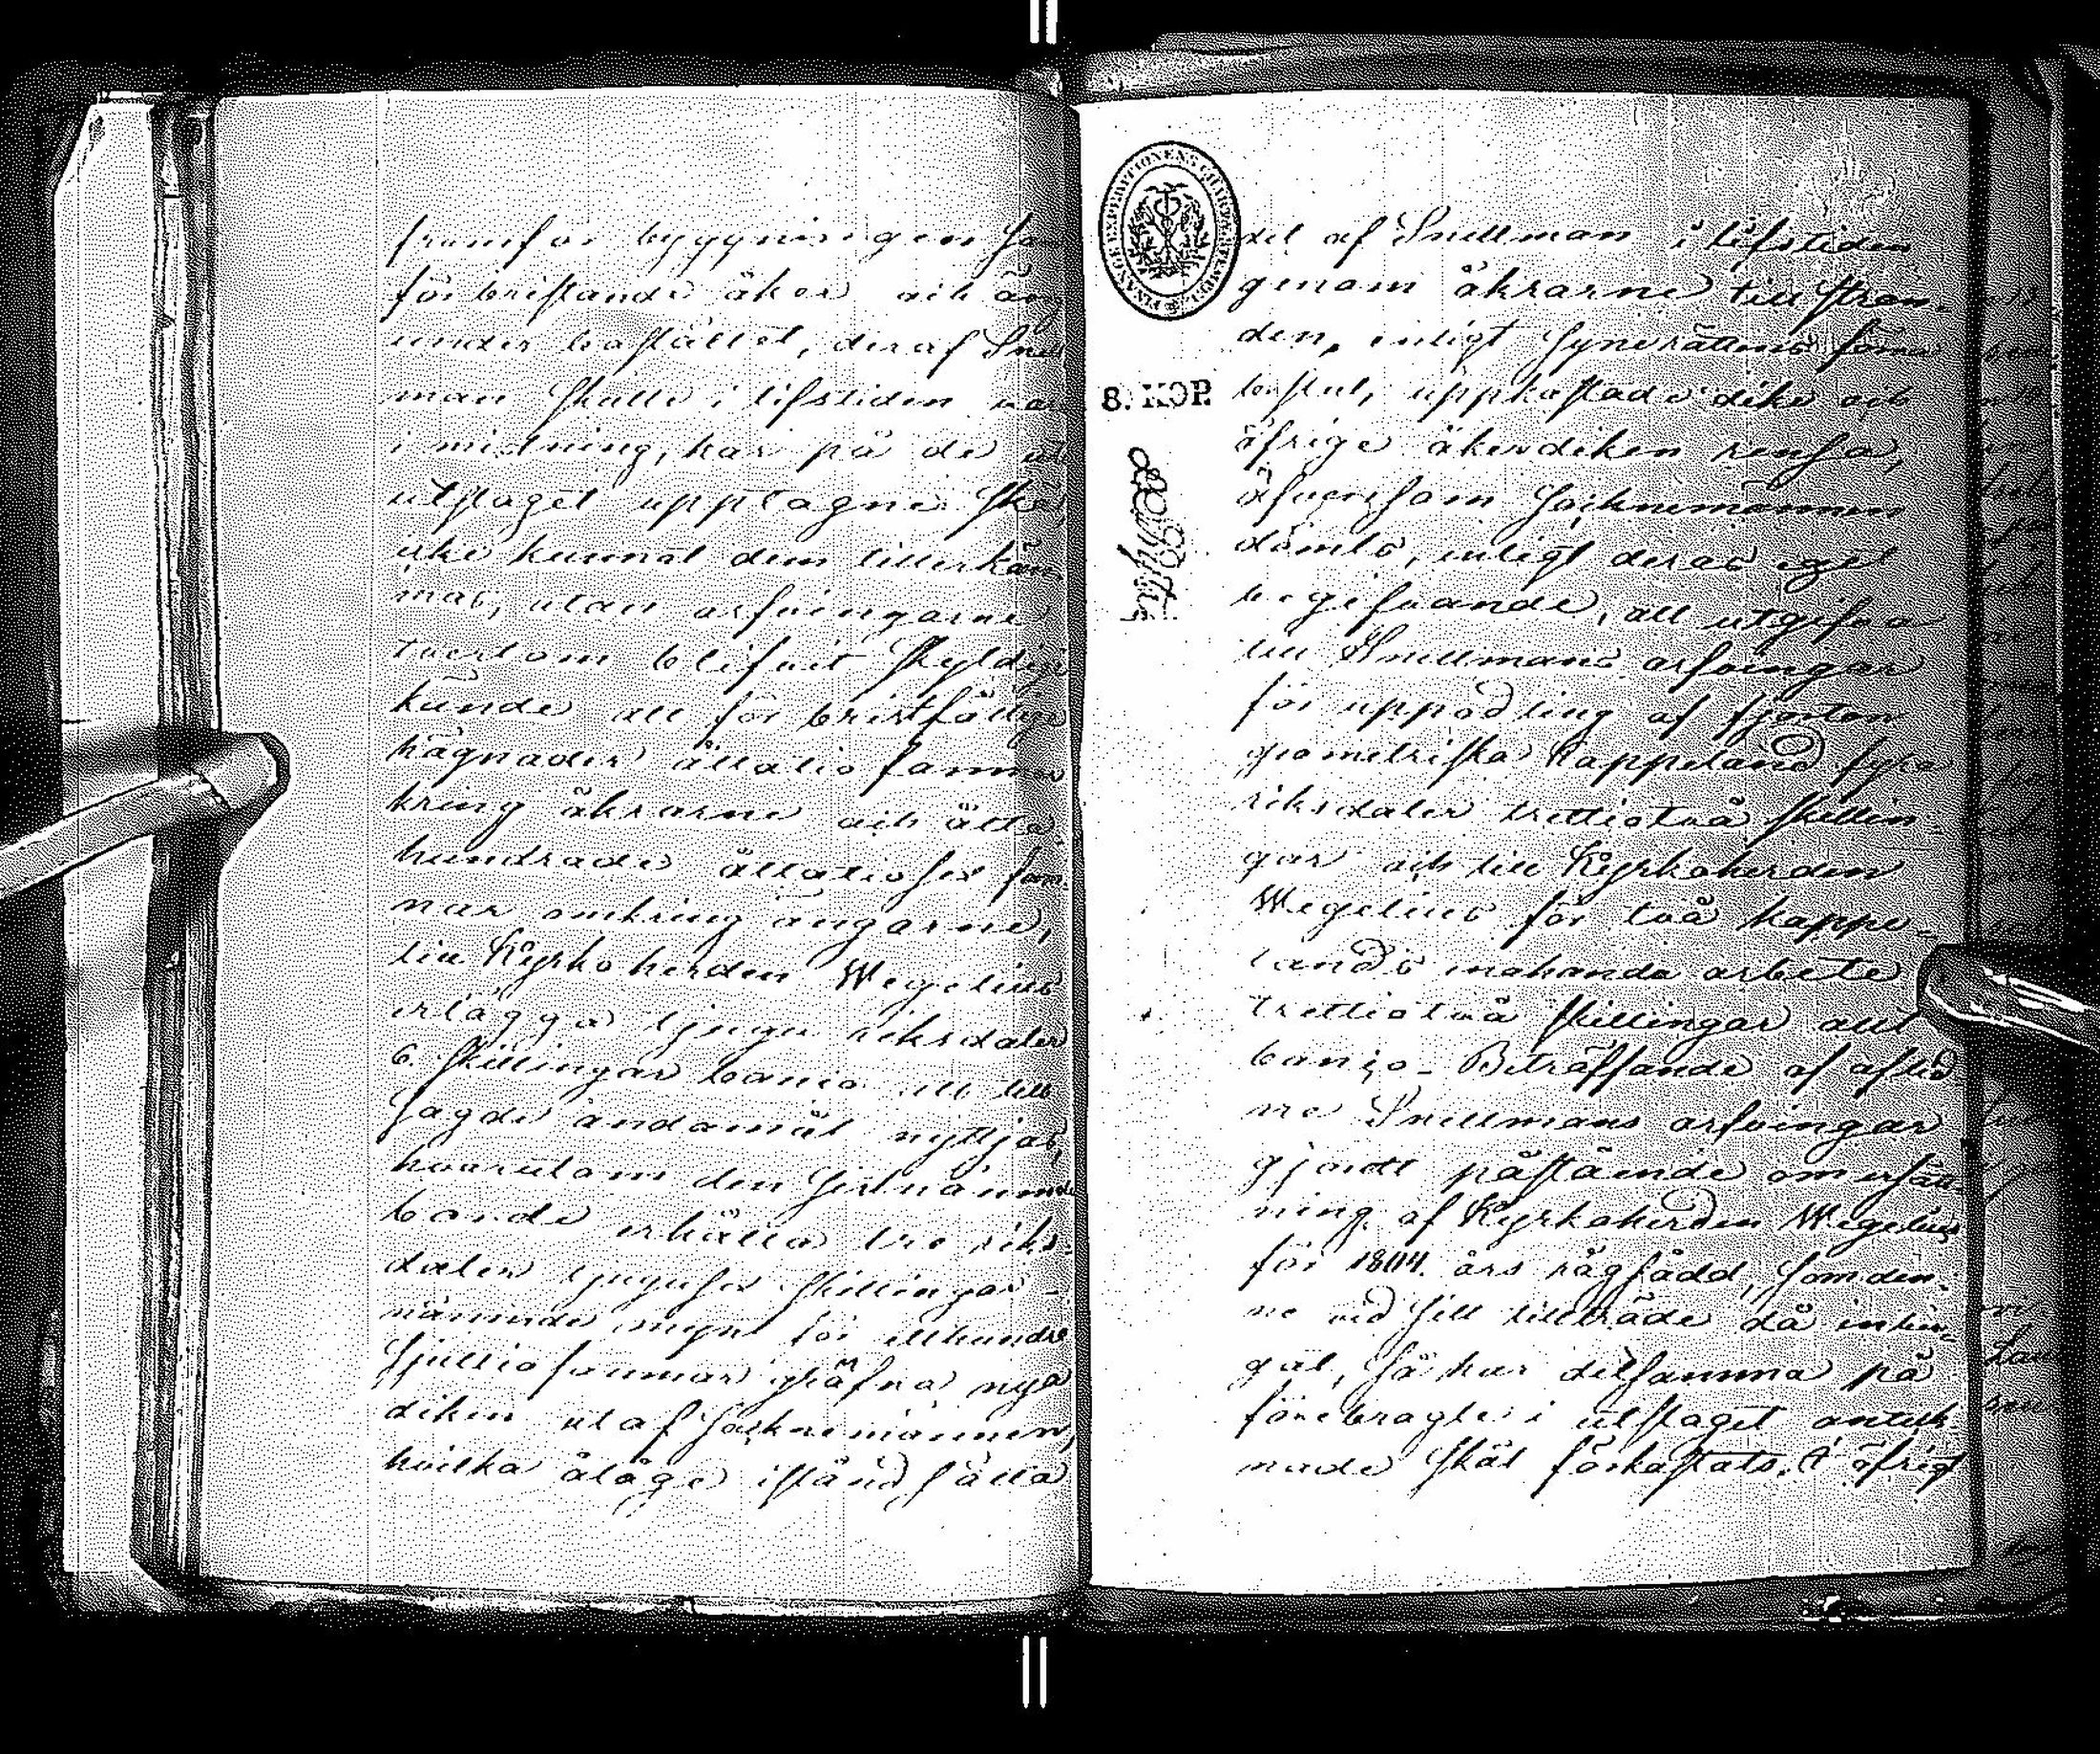 framför byggningen sam
för bristande åker och äng
under bostället, deraf Snell
man skulle i lifstiden var
i midning, har på de
utslaget upptagne skä
icke kunnat dem tillerkän
nas, utan arfvingarne
tvertom blifvit skyldig
kände att för bristfällige
hägnader åttatio famnar
kring åkrarne och åtta
hundrade åttatiosex fam-
nar omkring ängarne,
till Kyrkoherden Wegelius
erlägga tjugu riksdaler
6. skillingar banco att till
sagde ändamål nyttjas,
hvarutom den sistnämnde
borde erhålla tre riks-
daler tjugusex skillingar
nämnde mynt för etthundra
sjuttio famnar gräfna nya
diken utaf Socknemännen,
hvilka ålåge istånd sätta
det af Snellman i lifstiden
genom åkrarne till stran-
den, enligt Synerättens förra
beslut, uppkastade dike och
öfrige åkerdiken rensa,
äfvensom Socknemännen
dömts, enligt deras eget
begifvande, att utgifva
till Snellmans arfvingar
för uppodling af fjorton
geometriska kappeland fyra
riksdaler trettiotvå skillin-
gar och till Kyrkoherden
Wegelius för två kappe-
lands enahanda arbete
trettiotvå skillingar allt
banco. Beträffande af aflid
ne Snellmans arfvingar
gjordt påstående om ersätt-
ning af Kyrkoherden Wegelius
för 1804. års rågsådd, som den-
ne vid sitt tillträde då intim-
gat, så har detsamma på
förebragte i utslaget anteck-
nade skäl förkastats. I öfrigt
FINANCE EXPEDITIONENS CHARTÆ STEMPEL
8. KOP.